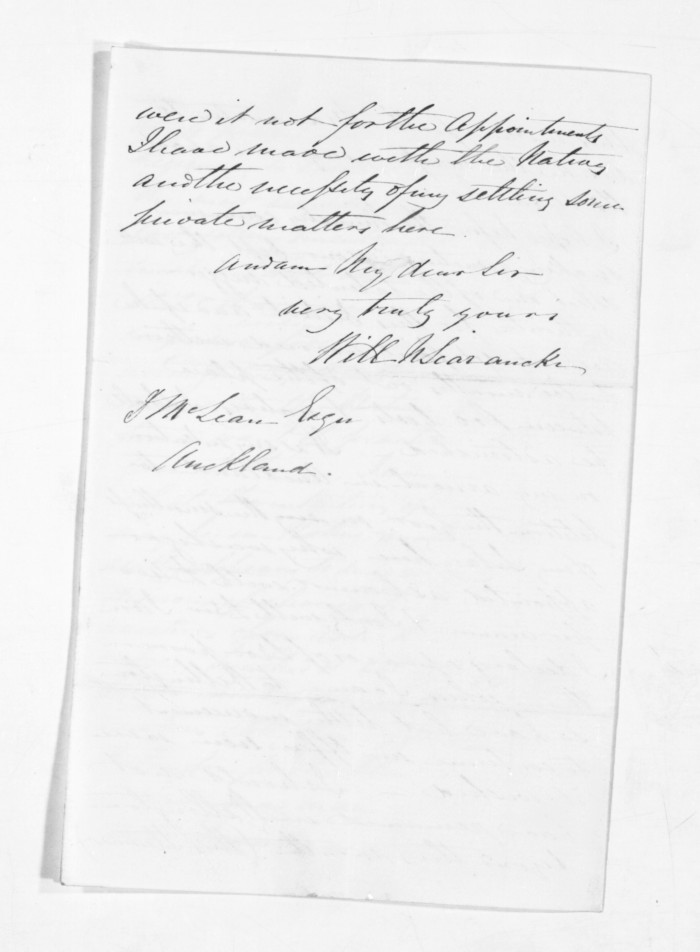 were it not for the Appointments
I have made with the Natives
and the necessity of my settling some
private matters here.
and am My dear Sir
very truly yours
Will N Searancke
McLean Esqr
Auckland.